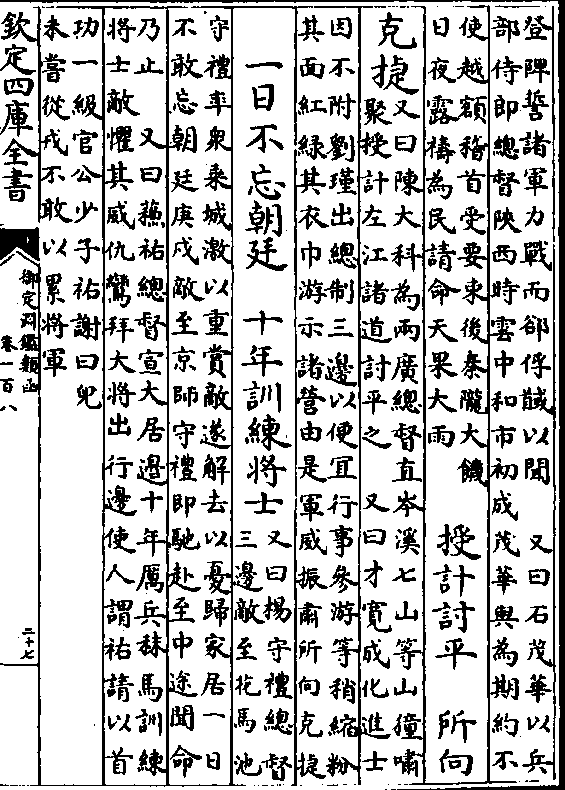 登陴誓諸軍力戰而卻俘馘以聞　又曰石茂華以兵
部侍郎總督陝西時雲中和市初成茂華與為期約不
使越額稽首受要束後秦隴大饑
日夜露禱為民請命天果大雨
授計討平　所向
克捷
又曰陳大科為兩廣總督直岑溪七山等山獞嘯
聚授計左江諸道討平之　又曰才寬成化進士
因不附劉瑾出總制三邊以便宜行事參游等稍縮粉
其面紅綠其衣巾游示諸營由是軍威振肅所向克捷
一日不忘朝廷　十年訓練將士
又曰楊守禮總督
三邊敵至花馬池
守禮率衆乘城激以重賞敵遂解去以憂歸家居一日
不敢忘朝廷庚戌敵至京師守禮即馳赴至中途聞命
乃止　又曰蘇祐總督宣大居邊十年厲兵秣馬訓練
將士敵懼其威仇鸞拜大將出行邊使人謂祐請以首
功一級官公少子祐謝曰兒
未嘗從戎不敢以累將軍
欽定四庫全書
御定淵鑑類函
卷一百八
二十七